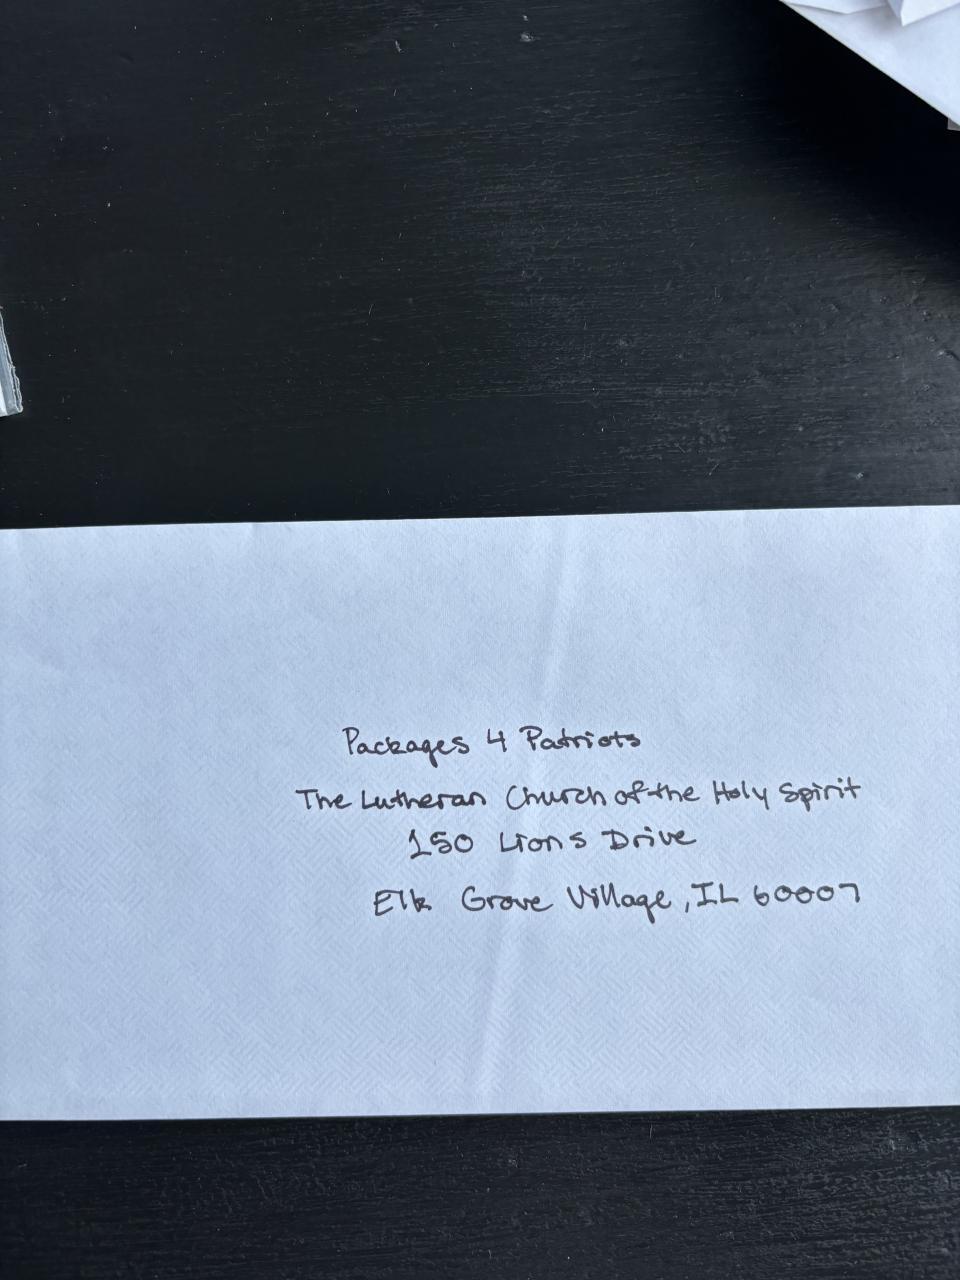 Packages 4 Patriots
The Lutheran Church of the Holy Spirit
150 Lions Drive
Elk Grove Village, IL 60007